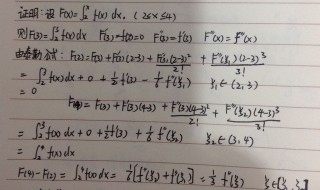 证明: 设 F(x)=∫₂ˣ f(x) dx. (2≤x≤4)
则 F(3)=∫₂³ f(x)dx F'(3)=f(3)=0 F''(3)=f'(3) F'''(x)=f''(x)
由泰勒公式: F(2)=F(3)+F'(3)(2-3)+F''(3)(2-3)²/2!+F'''(ξ₁)(2-3)³/3!
=∫₂³ f(x)dx+0+½f'(3)-1/6 f''(ξ₁) ξ₁∈(2,3)
=0
F(4)=F(3)+F'(3)(4-3)+F''(3)(4-3)²/2!+F'''(ξ₂)(4-3)³/3!
=∫₂³ f(x)dx+0+½f'(3)+1/6 f''(ξ₂) ξ₂∈(3,4)
=∫₂⁴ f(x)dx
F(4)-F(2)=∫₂⁴ f(x)dx=1/6[f''(ξ₁)+f''(ξ₂)]=⅓f''(ξ)